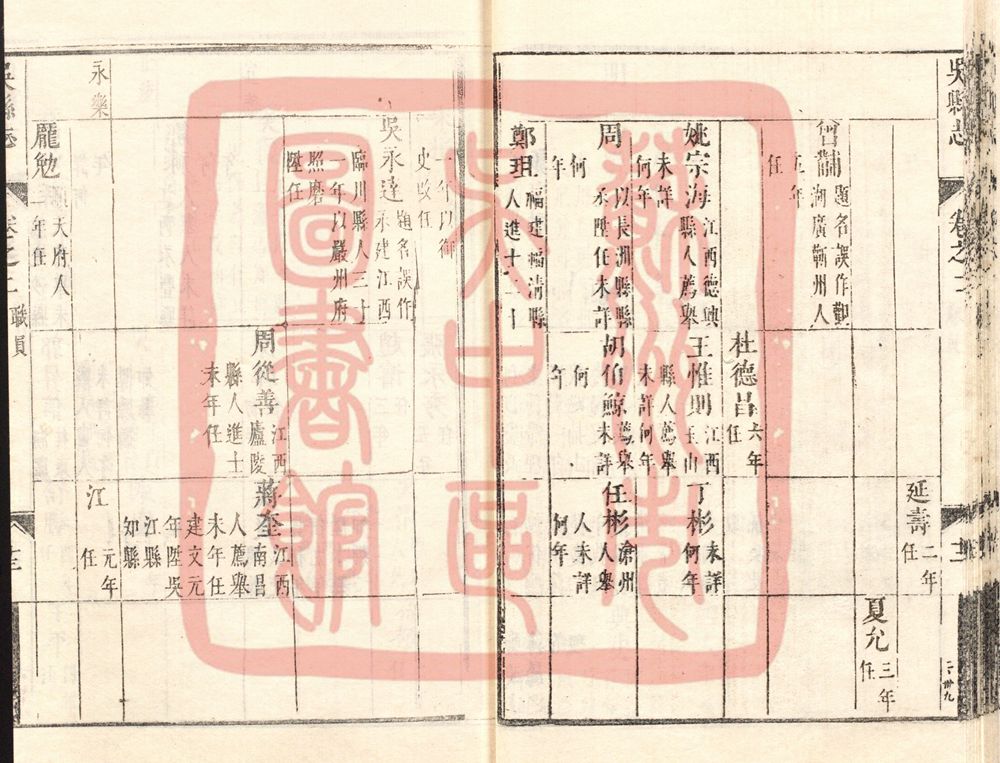 吳縣志
卷之二
延壽二年
任
夏允三年
任
題名誤作
湖廣蘄州人
五年
任
杜德昌六年
任
姚宗海江西德興
縣人薦舉
未詳
何年
王惟則江西
玉山
縣人薦舉
未詳何年
丁彬未詳
何年
周
以長洲縣縣
丞陞任未詳
何
年
胡伯鯨薦舉
未詳
何
年
任彬
人舉
人未詳
何年
鄭玥福建福清縣
人進十二十
一年以御
史改任
吳永達題名誤作
永建江西
臨川縣人三十
一年以嚴州府
照磨
陞任
周從善江西
廬陵
縣人進士
末年任
蔣奎江西
南昌
人薦舉
末年任
建文元
年陞吳
江縣
知縣
永樂
江元年
任
龐勉
天府人
二年任
吳縣志
卷之二
職員